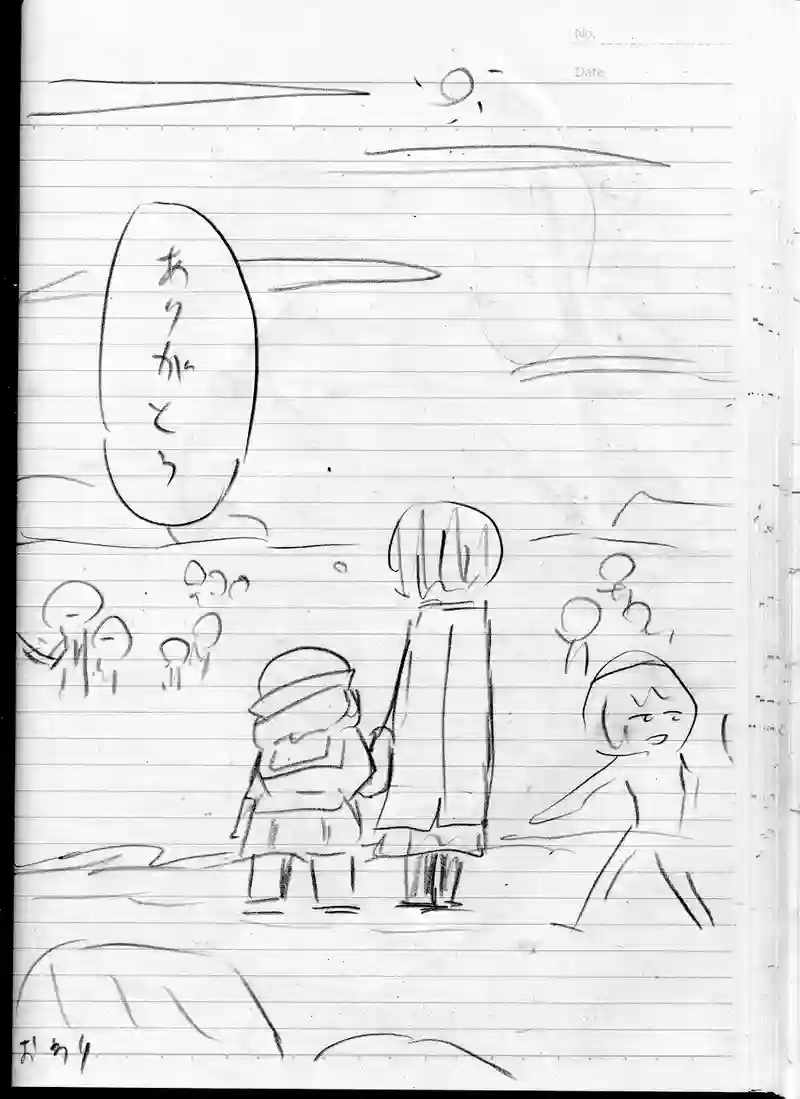 No.
Date
ありがとう
おわり